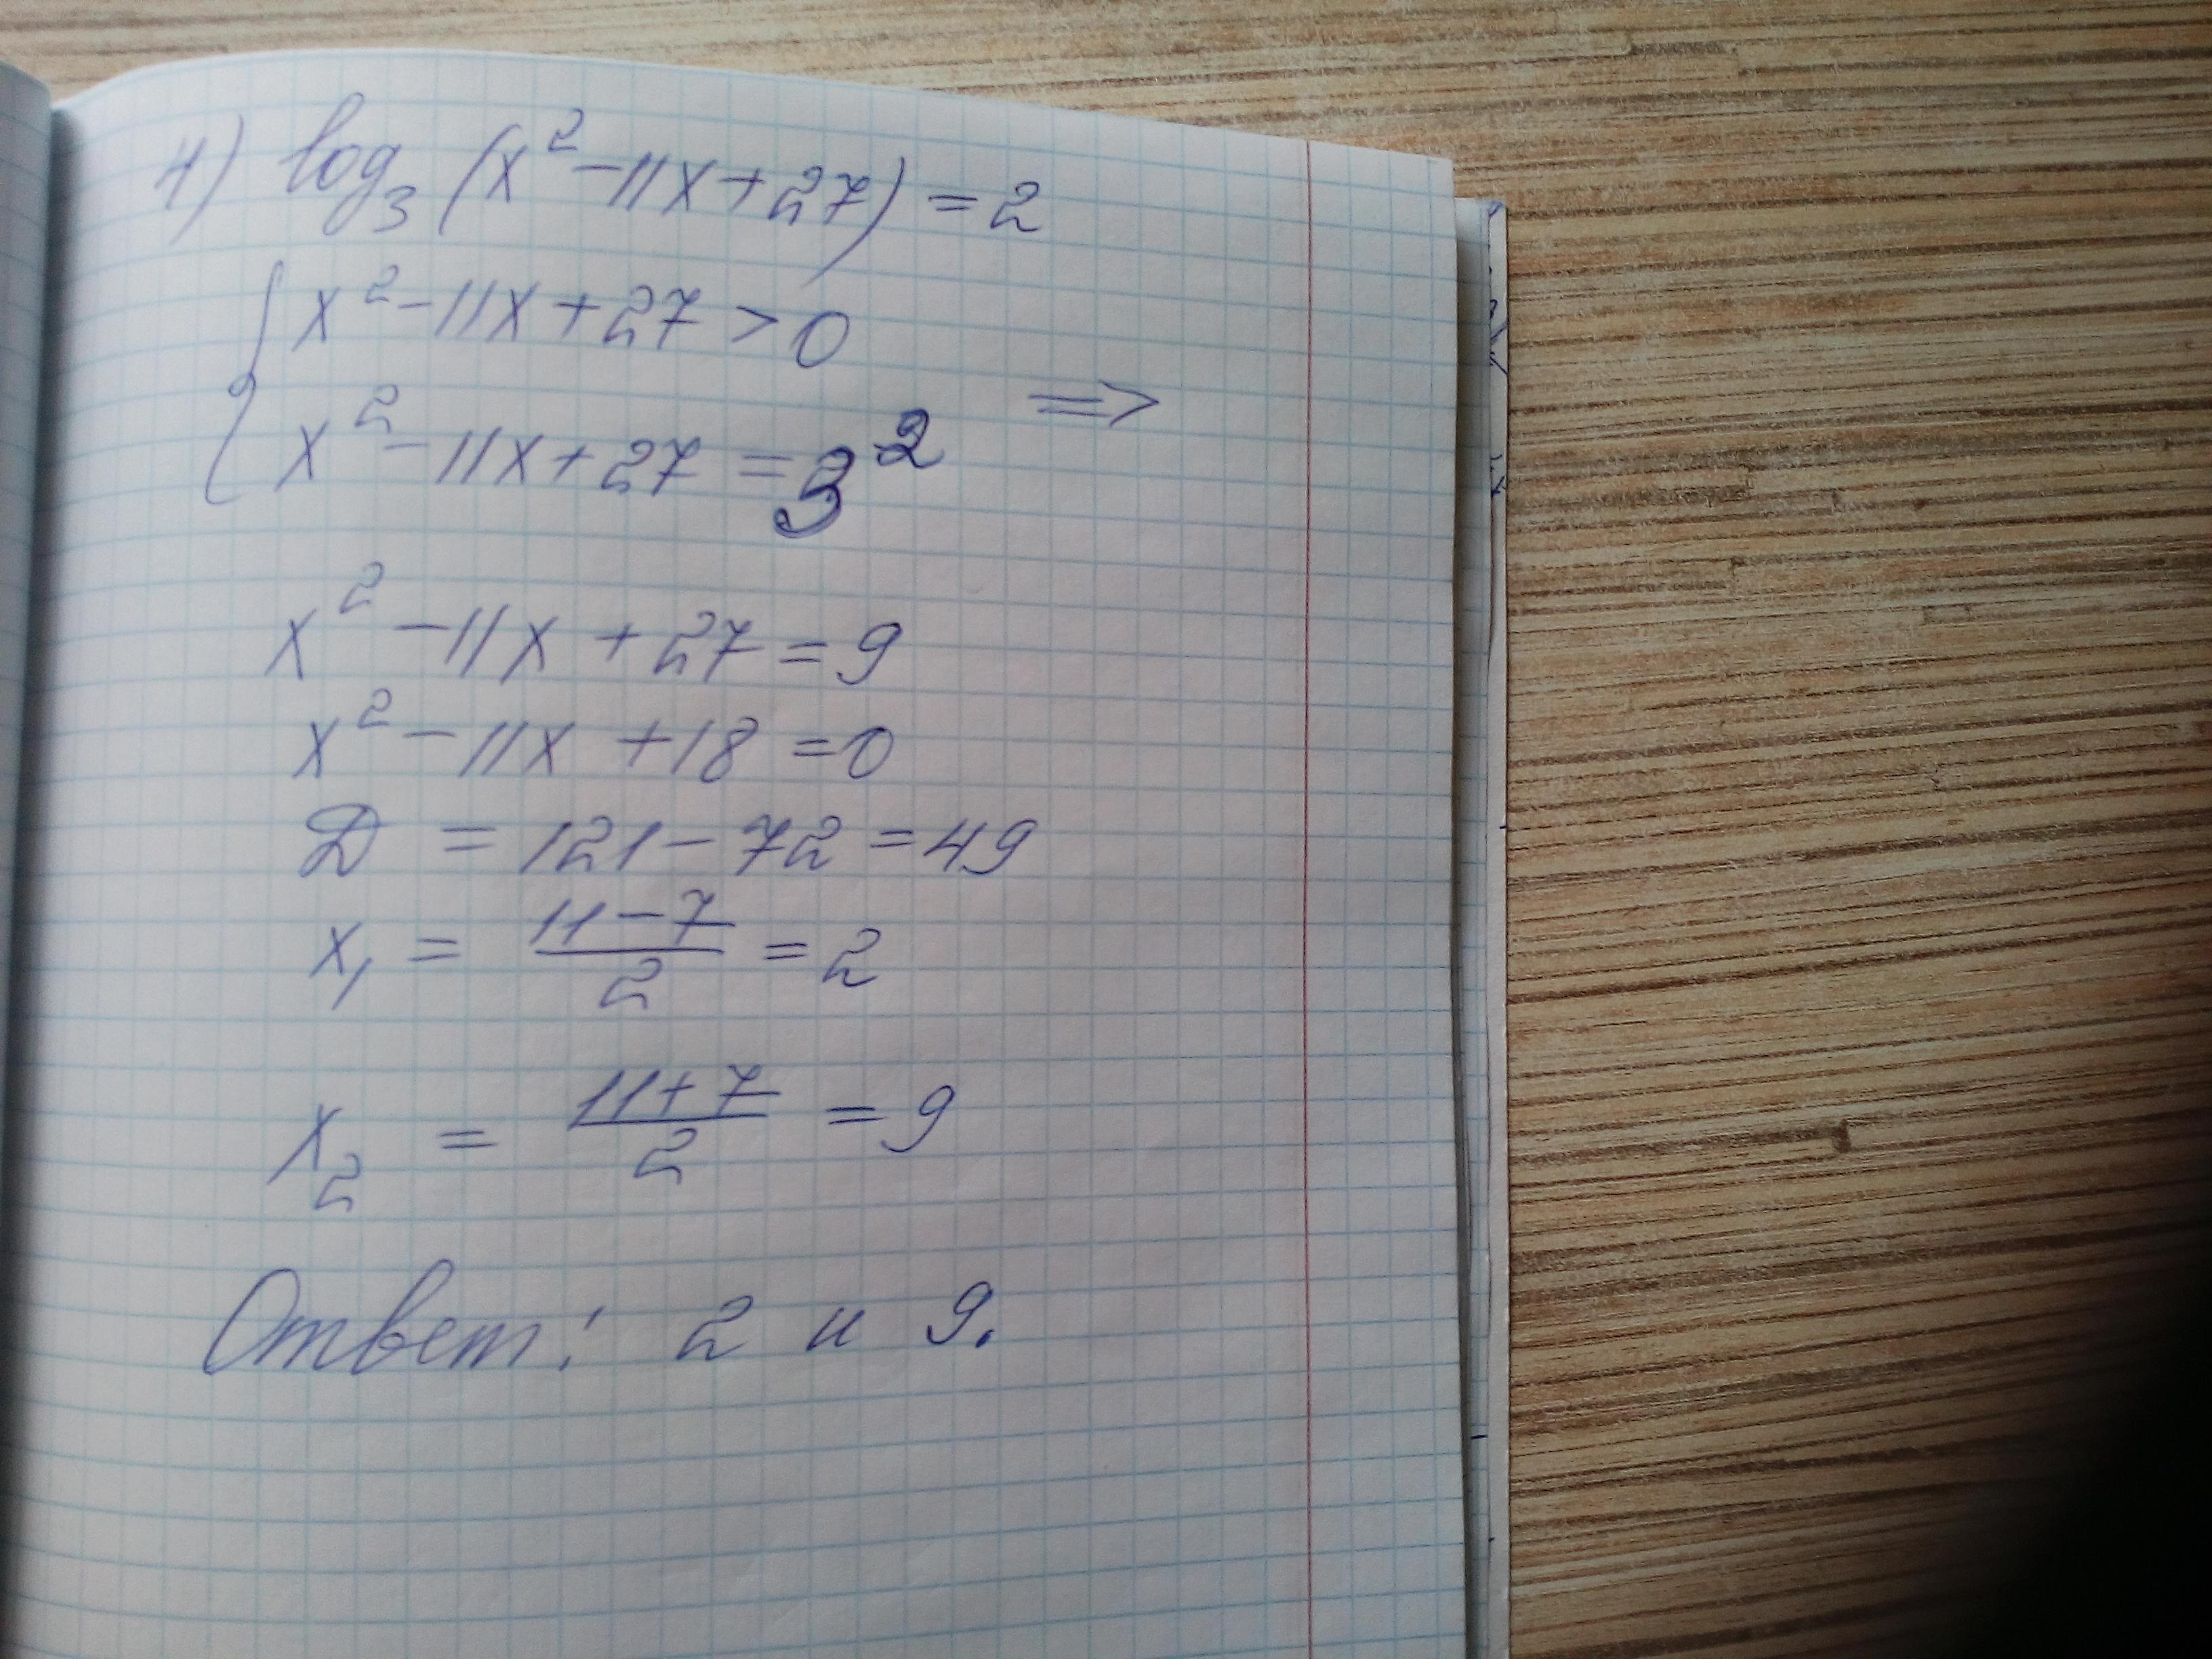 4) log₃ (x² - 11x + 27) = 2
{ x² - 11x + 27 > 0
x² - 11x + 27 = 3² ⇒
x² - 11x + 27 = 9
x² - 11x + 18 = 0
D = 121 - 72 = 49
x₁ = (11 - 7)/2 = 2
x₂ = (11 + 7)/2 = 9
Ответ: 2 и 9.